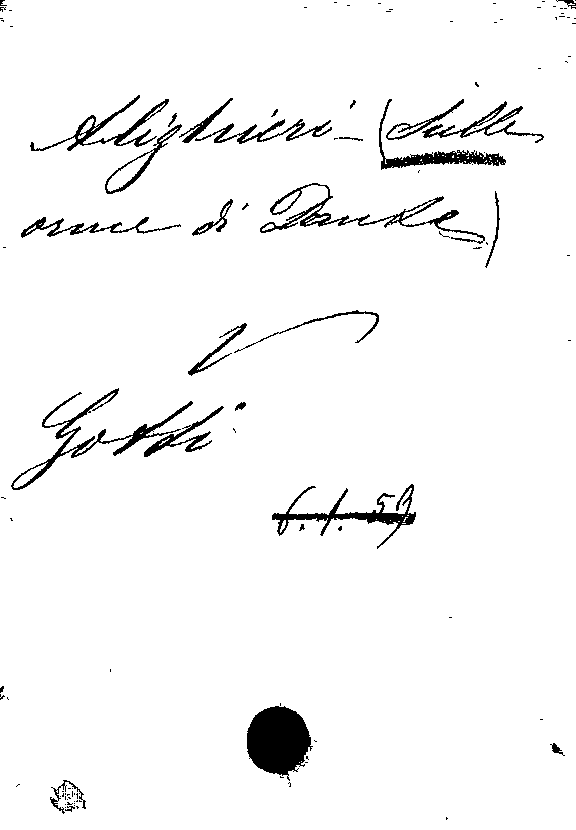 Alighieri - (Sulle
orme di Dante)
V
Gotti
6.1.53